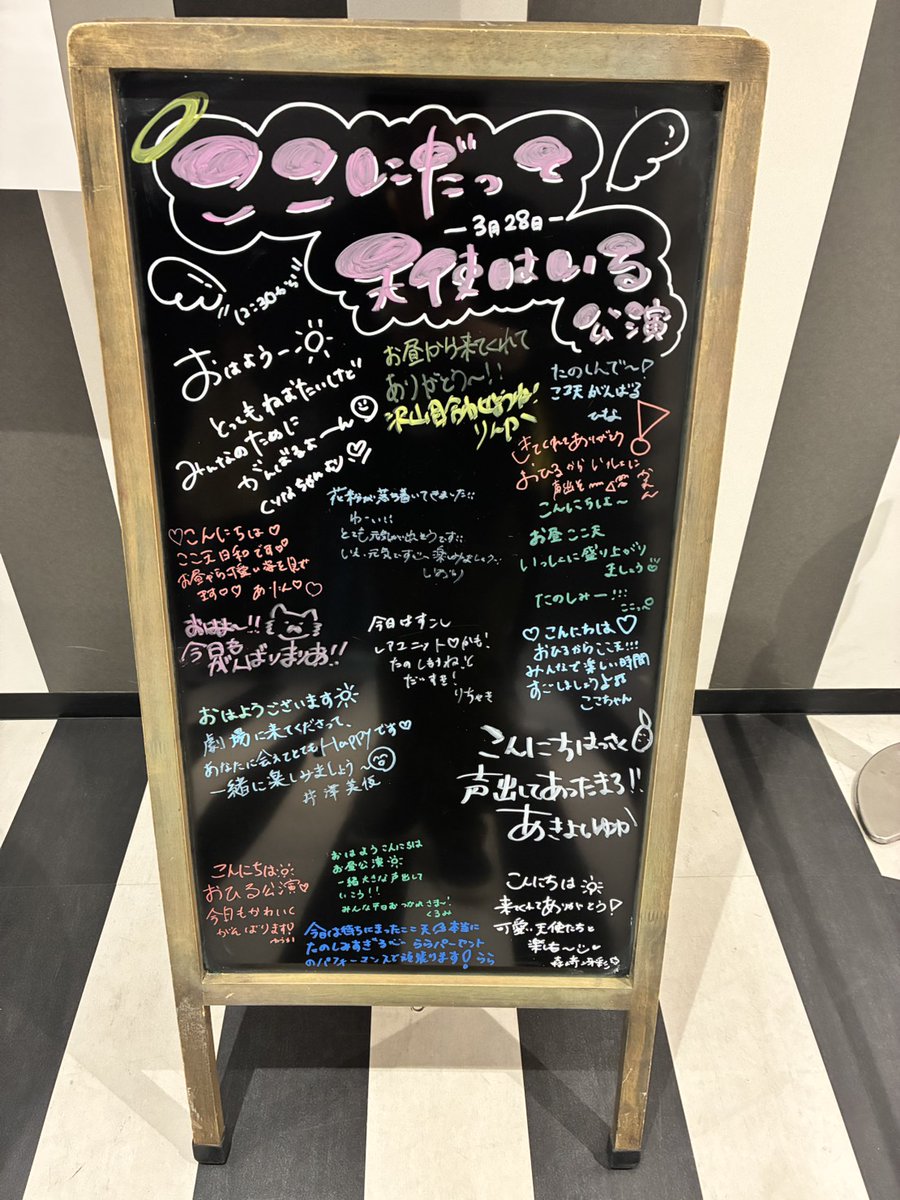 ここにだって
ー3月28日ー
天使はいる
公演
12:30から
おはようー
とってもねむたいけど
みんなのために
がんばるよーん
お昼から来てくれて
ありがとう〜!!
沢山目合わせようね!
りんか
たのしんで〜!
ここ天がんばる
ひな
きてくれてありがとう
おひるからいっしょに
声出そ
こんにちは〜
お昼ここ天
いっしょに盛り上がり
ましょう♡
たのしみー!!!
花粉が落ち着いてきました!!
わーい!!
とても元気が出そうです!!
しおり
♡こんにちは♡
ここ天日和です♡
お昼から可愛い姿を見て
ます♡♡ ありん♡♡
おはよ〜!!
今日も
がんばりまりあ!!
今日はすこし
レアユニット♡かも!
たのしもうねっ
だいすき!
りちゃき
♡こんにちは♡
おひるからここ天!!!
みんなで楽しい時間
すごしましょう♪♪
ここちゃん
おはようございます
劇場に来てくださって、
あなたに会えてとてもHappyです♡
一緒に楽しみましょう〜
井澤美優
こんにちはっさく
声出してあったまろ!!
あきよしゆか
こんにちは
おひる公演♡
今日もかわいく
がんばります!
ゆうか
おはようこんにちは
お昼公演
一緒大きな声出して
いこう!!
みんな平日おつかれさま〜!
くるみ
今日は待ちにまったここ天 本当に
たのしみすぎる ららパーセント
のパフォーマンスで頑張ります! らら
こんにちは
来てくれてありがとう!
可愛い天使たちと
楽しも〜
森﨑冴彩♡